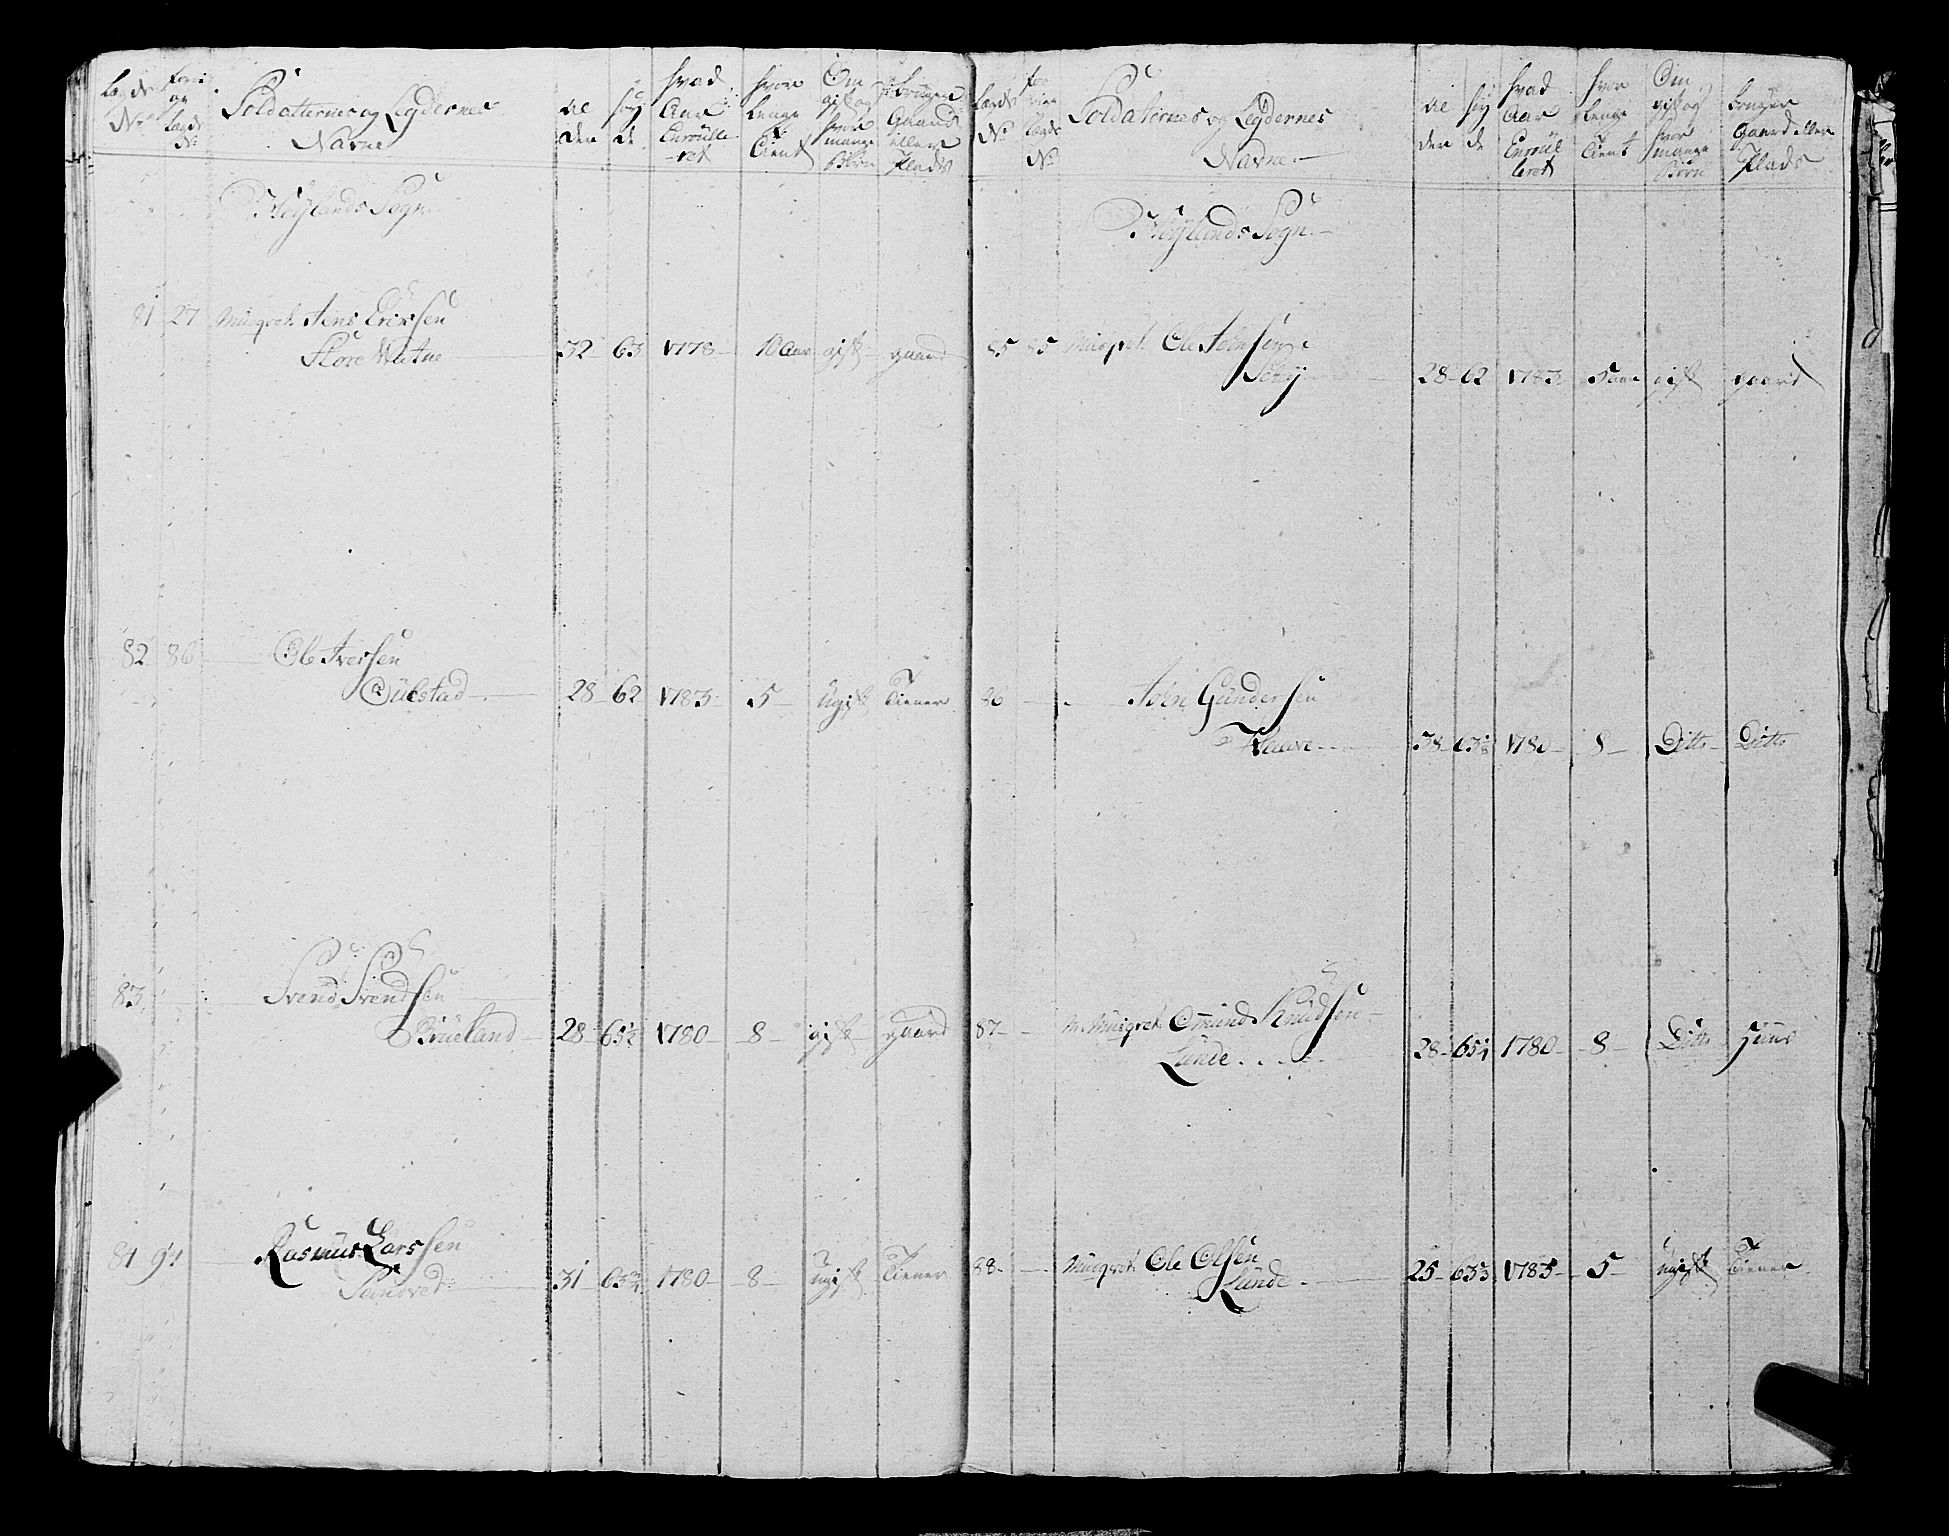 Lægds No
Soldaternes og Leydernes Navne
Al der
Høy de
Hvad Aar Enroulle-ret
Hvor lenge Tient
Om gift og hvor mange Børn
bruger Gaard eller Plads
Høylands Sogn
81 27 Musqvet. Jens Erichsen
Store Watne 32 63 1778 10 Aar gift gaard
82 86 Ole Iversen
28 62 1783 5 ugift Tiener
83 Svend Svendsen
Brueland 28 65½ 1780 8 gift gaard
84 94 Rasmus Larssen
Sandved 31 63¾ 1780 8 ugift Tiener
Lægds No
Forrige Lægds No
Soldaternes og Leydernes Navne
Al der
Høy de
Hvad Aar Enroulleret
Hvor lenge Tient
Om gift og hvor mange Børn
bruger Gaard eller Plads
Høylands Sogn
85 85 Ole
28 62 1783 5 aar gift gaard
86 John Gundersen
38 1780 8 Ditto Ditto
87 Musqvet. Omund Knudsen
Lunde 28 1780 8 Ditto Huus
88 Musqvet. Ole Olsen
Lunde 25 1783 5 ugift Tiener